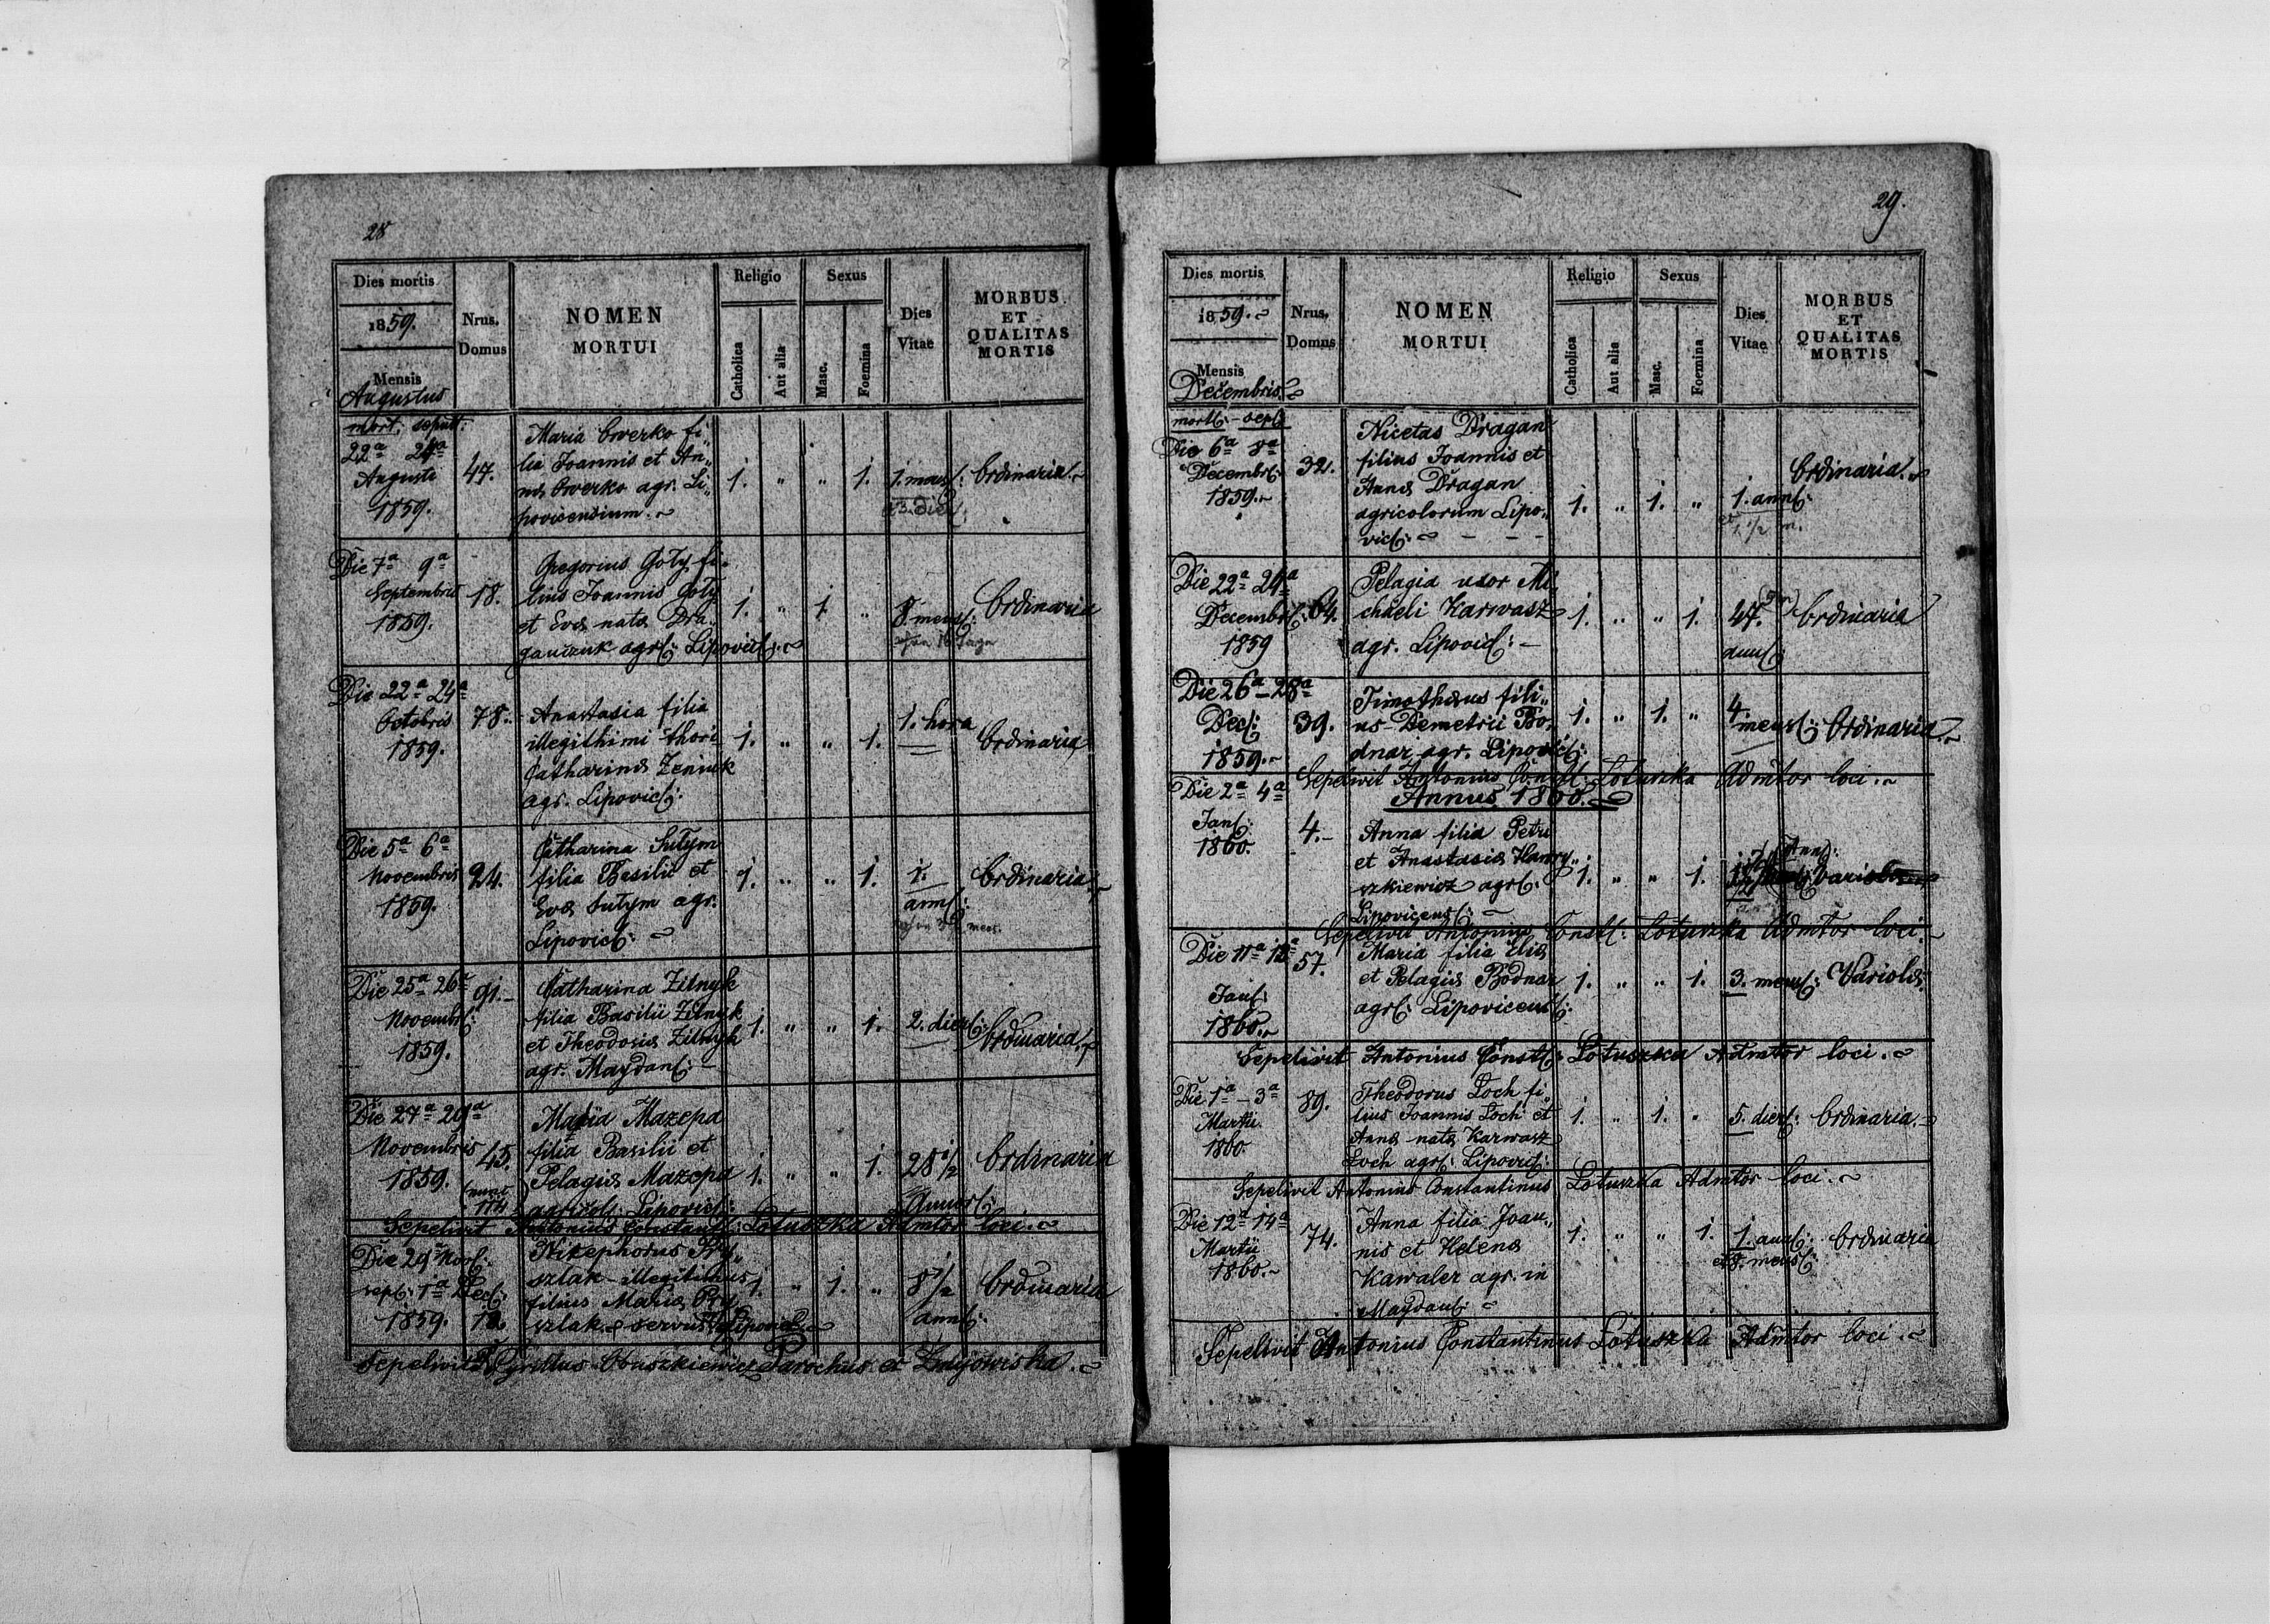 28
Dies mortis
1859.
Mensis
Augustus
Nrus.
Domus
NOMEN
MORTUI
Religio
Catholica
Aut alia
Sexus
Masc.
Foemina
Dies
Vitae
MORBUS
ET
QUALITAS
MORTIS
mort: sepult:
22a 24a
Augusti
1859.
47.
Maria Owerko fi„
lia Joannis et An„
nae Owerko agr. Li„
povicensium.
1. „ „ 1.
1. mens:
3. dier:
Ordinaria.
Die 7a 9a
Septembris
1859.
18.
Gregorius Goły fi„
lius Joannis Goły
et Evae nata Dra„
ganczuk agr: Lipovic:
1. „ 1. „
8. mens:
Ordinaria
Die 22a 24a
Octobris
1859.
78.
Anastasia filia
illegithimi thori
Catharinae Zeniuk
agr. Lipovic:
1. „ „ 1.
1. hora
Ordinaria
Die 5a 6a
Novembris
1859.
24.
Catharina Sutym
filia Basilii et
Evae Sutym agr.
Lipovic:
1. „ „ 1.
1.
ann:
Ordinaria
Die 25a 26a
Novembr:
1859.
91.
Catharina Zilnyk
filia Basilii Zilnyk
et Theodosiae Zilnyk
agr. Maydan:
1. „ „ 1.
2. dier:
Ordinaria
Die 27a 29a
Novembris
1859.
45.
Maria Mazepa
filia Basilii et
Pelagiae Mazepa
agricol: Lipovic:
1. „ „ 1.
28 1/2
Annor:
Ordinaria
Sepelivit Antonius Constant: Łotuszka Admtor loci.
Die 29 Nov:
sep: 1a Dec:
1859.
Nikephorus Pry„
szlak illegitimus
filius Mariae Pry„
szlak servus Lipovic:
1. „ 1. „
8 1/2
ann:
Ordinaria
Sepelivit Cyrillus Obuszkiewicz Parochus
29.
Dies mortis
1859.
Mensis
Decembris
Nrus.
Domus
NOMEN
MORTUI
Religio
Catholica
Aut alia
Sexus
Masc.
Foemina
Dies
Vitae
MORBUS
ET
QUALITAS
MORTIS
mort: sep:
Die 6a 8a
Decembr:
1859.
32.
Nicetas Dragan
filius Joannis et
Annae Dragan
agricolorum Lipo„
vic:
1. „ 1. „
1. ann:
1 1/2 m.
Ordinaria.
Die 22a 24a
Decembr:
1859
64.
Pelagia uxor Mi„
chaeli Karwasz
agr. Lipovic:
1. „ „ 1.
47.
ann:
Ordinaria
Die 26a 28a
Dec:
1859.
39.
Timothaeus fili„
us Demetrii Bo„
dnar agr. Lipovic:
1. „ 1. „
4
mens:
Ordinaria.
Sepelivit Antonius Const: Łotuszka Admtor loci.
Annus 1860.
Die 2a 4a
Jan:
1860.
4.
Anna filia Petri
et Anastasiae Hawry„
szkiewicz agr:
Lipovicens:
1. „ „ 1.
Sepelivit Antonius Const: Łotuszka Admtor loci.
Die 11a 12a
Jan:
1860.
57.
Maria filia Eliae
et Pelagiae Bodnar
agr: Lipovicens:
1. „ „ 1.
3. mens:
Variolae.
Sepelivit Antonius Const: Łotuszka Admtor loci.
Die 1a 3a
Martii
1860.
89.
Theodorus Łoch fi„
lius Joannis Łoch et
Annae nata Karwasz
Łoch agr: Lipovic:
1. „ 1. „
5. dier:
Ordinaria.
Sepelivit Antonius Constantinus Łotuszka Admtor loci.
Die 12a 14a
Martii
1860.
74.
Anna filia Joan„
nis et Helenae
Kawaler agr. in
Maydan:
1. „ „ 1.
1. ann:
et 8. mens:
Ordinaria
Sepelivit Antonius Constantinus Łotuszka Admtor loci.